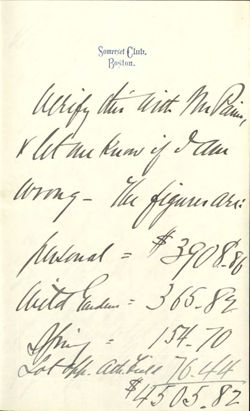 Somerset Club,
Boston.
Verify this with Mr Paine,
& let me know if I am
wrong - The figures are:
personal = $3908.86
Wild Garden = 365.82
Spring = 154.70
Lot opp. 76.44
$4505.82